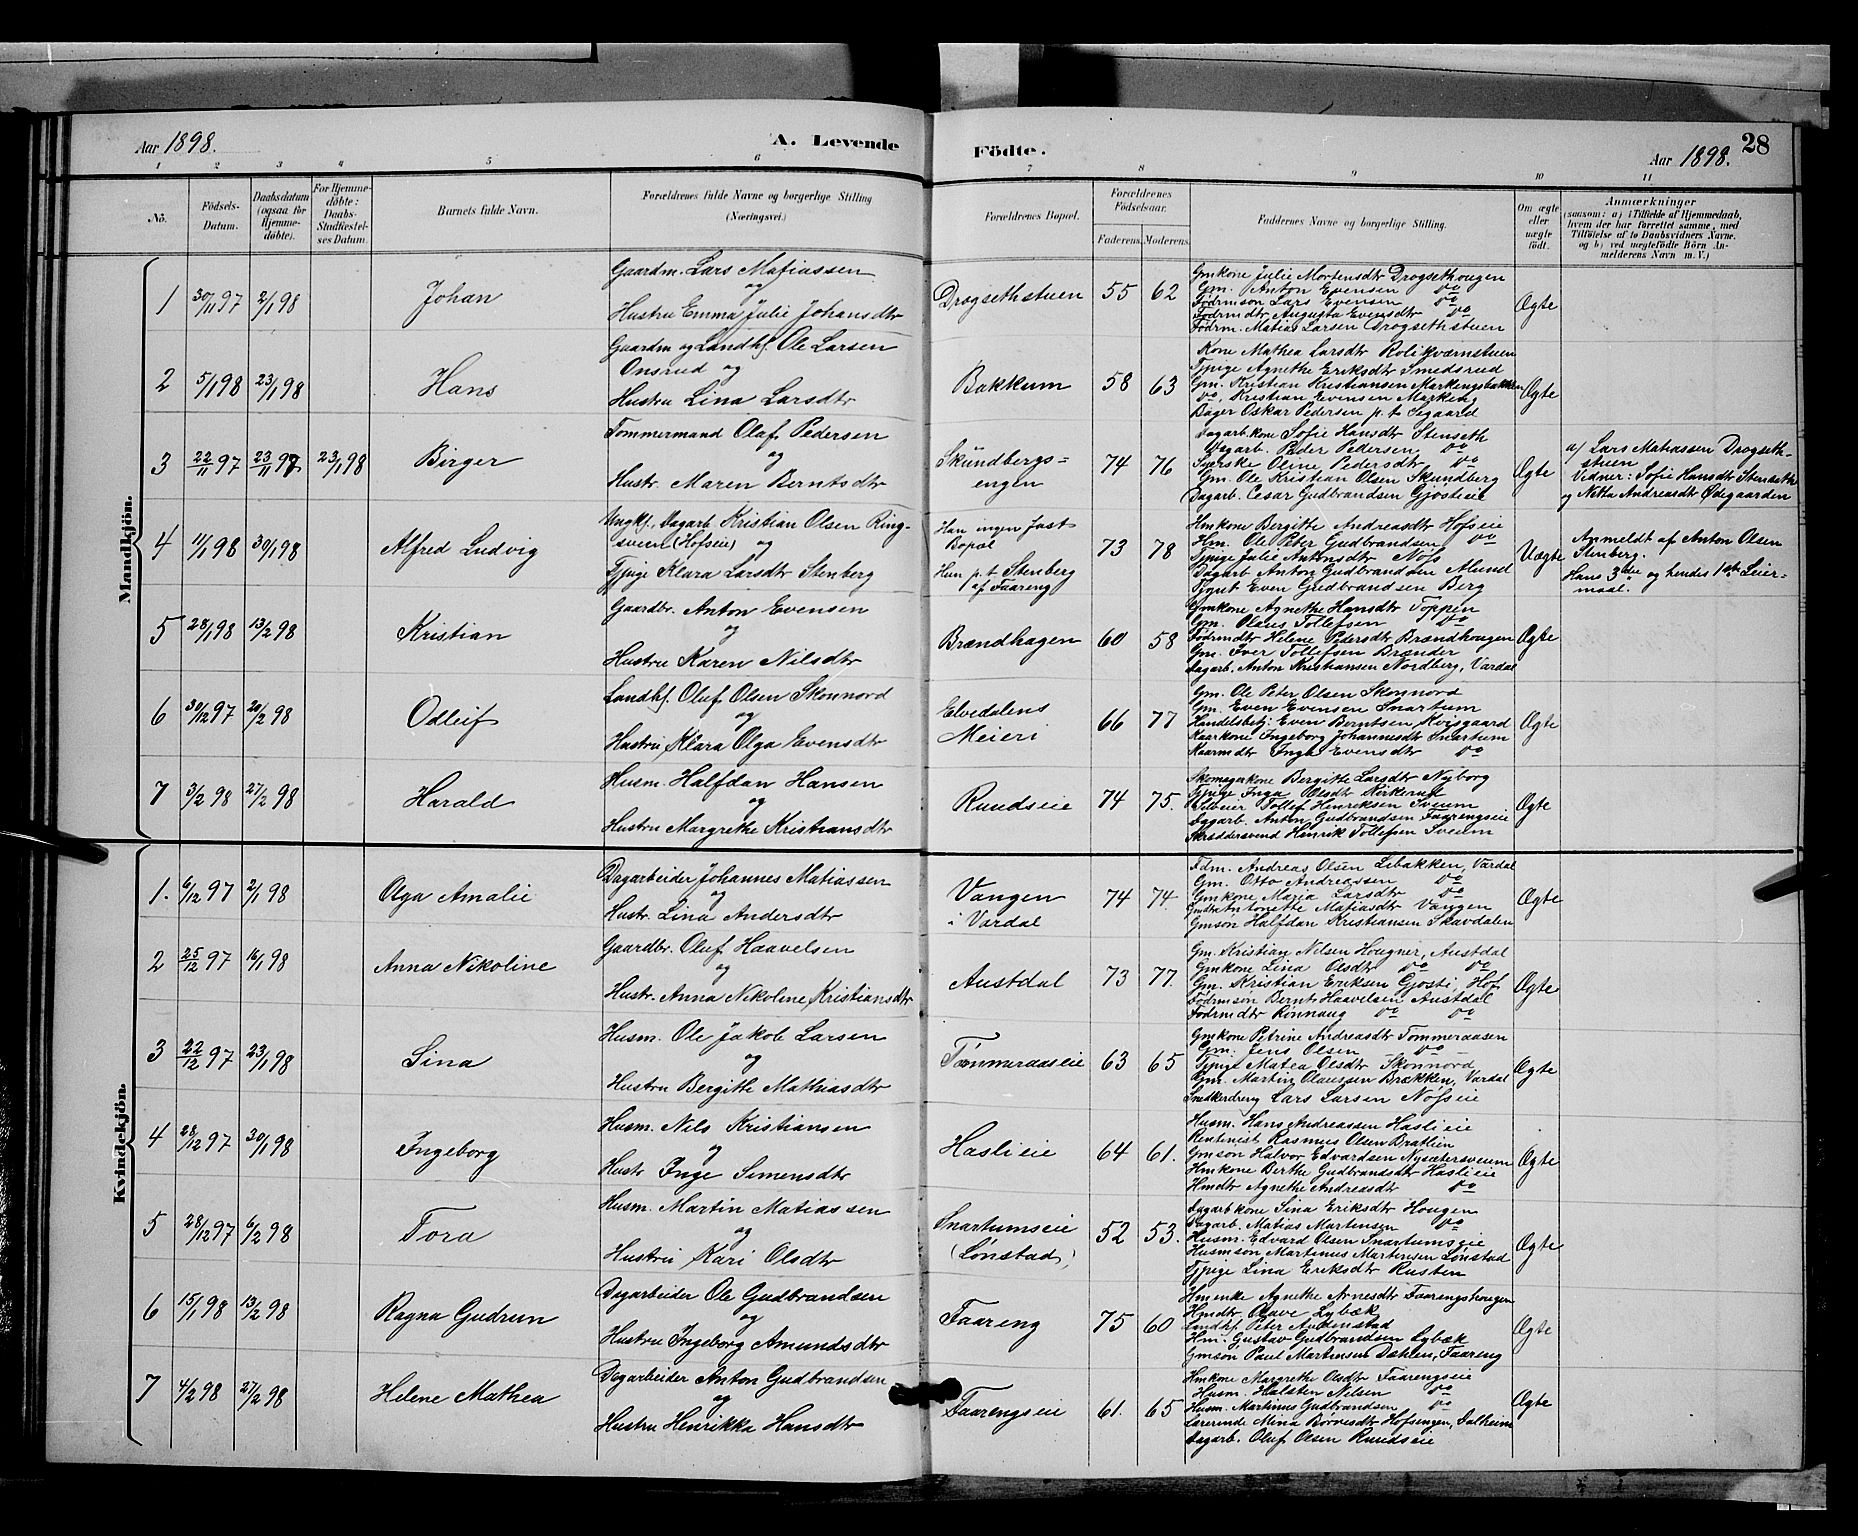 Aar 1898.
A. Levende
Födte.
Aar 1898.
28
1 2 3 4 5 6 7 8 9 10 11
No.
Födsels-
Datum.
Daabsdatum
(ogsaa for
Hjemme-
døbte).
For Hjemme-
døbte:
Daabs-
Stadfæstel-
ses Datum.
Barnets fulde Navn.
Forældrenes fulde Navne og borgerlige Stilling
(Næringsvei.)
Forældrenes Bopæl.
Forældrenes
Födselsaar.
Faderens.
Moderens.
Faddernes Navne og borgerlige Stilling.
Om ægte
eller
uægte
født.
Anmærkninger
(saasom: a) i Tilfælde af Hjemmedaab,
hvem der har forrettet samme, med
Tilføielse af to Daabsvidners Navne.
og b) ved uegtefødte Börn An-
melderens Navn m. V.)
Mandkjön.
1
30/11 97
2/1 98
Johan
Gaardm. Lars Matiassen
og
Hustru Emma Julie Johansdtr
Drogsethstuen
55
62
Gmkone Julie Mortensdtr Drogsethougen
Gm. Anton Evensen do
Födrmsön Lars Evensen do
Födrmdtr Augusta Evensdtr do
Födrm. Matias Larsen Drogsethstuen
Ægte
2
5/1 98
23/1 98
Hans
Gaardm og Landhf. Ole Larsen
Onsrud og
Hustru Lina Larsdtr
Bakkum
58
63
Kone Mathea Larsdtr Rolikværnstuen
Tjpige Agnethe Eriksdtr Smedsrud
Gm. Kristian Kristiansen Markengsbakken
do, Kristian Evensen Markeng
Bager Oskar Pedersen p.t. Segaard
Ægte
3
22/11 97
23/11 97
23/1 98
Birger
Tommermand Olaf Pedersen
og
Hustr. Maren Berntsdtr
Skundbergs=
engen
74
76
Dagarb.kone Sofie Hansdtr Stenseth
Dagarb. Peder Pedersen do
Syerske Oline Pedersdtr do
Gm. Ole Kristian Olsen Skundberg
Dagarb. Cesar Gudbrandsen Gjøstieie
Ægte
a/ Lars Matiassen Drogseth-
stuen
Vidner: Sofie Hansdtr Stenseth
og Netta Andreasdtr Ødegaarden
4
11/1 98
30/1 98
Alfred Ludvig
Ungkf., Dagarb Kristian Olsen Ring-
sveen (Hofseie) og
Tjpige Klara Larsdtr Stenberg
Han ingen fast
Bopæl
Hun p.t Stenberg
af Faareng
73
78
Hmkone Bergitte Andreasdtr Hofseie
Hm. Ole Peter Gudbrandsen do
Tjpige Julie Antonsdtr Nøss
Dagarb Anton Gudbrandsen Alund
Tjgut Even Gudbrandsen Berg
Uægte
Anmeldt af Anton Olsen
Stenberg.
Hans 3die og hendes 1ste Leier-
maal.
5
28/1 98
13/2 98
Kristian
Gaardbr. Anton Evensen
og
Hustru Karen Nilsdtr
Brændhagen
60
58
Gmkone Agnethe Hansdtr Toppen
Gm. Olaus Tollefsen do
Födrmdtr Helene Pedersdtr Brændhougen
Gm. Iver Tollefsen Brænder
Dagarb. Anton Kristiansen Nordberg, Vardal
Ægte
6
30/12 97
20/2 98
Odleif
Landhf. Oluf Olsen Skonnord
og
Hustru Klara Olga Evensdtr
Elvedalens
Meieri
66
77
Gm. Ole Peter Olsen Skonnord
Gm. Even Evensen Snartum
Handelsbetj: Even Berntsen Kvisgaard
Kaarkone Ingeborg Johannesdtr Snartum
Kaarmdtr Inga Evensdtr do
Ægte
7
3/2 98
27/2 98
Harald
Husm. Halfdan Hansen
og
Hustru Margrethe Kristiansdtr
Rundseie
74
75.
Skomagerkone Bergitte Larsdtr Nyborg
Tjpige Inga Olsdtr Kirkerud
Tollef Henriksen Sveum
Dagarb. Anton Gudbrandsen Faarengseie
Skræddersvend Henrik Tollefsen Sveum
Ægte
Kvindekjön.
1.
6/12 97
2/1 98
Olga Amalie
Dagarbeider Johannes Matiassen
og
Hustr. Lina Andersdtr
Vangen
i Vardal
74
74.
Fdm. Andreas Olsen Libakken, Vardal
Gm. Otto Andreassen do
Gmkone Maria Larsdtr do
Gmdtr Antonette Matiasdtr Vangen
Gmsön Halfdan Kristiansen Skavdalen
Ægte
2
25/12 97
16/1 98
Anna Nikoline
Gaardbr. Oluf Haavelsen
og
Hustr. Anna Nikoline Kristiansdtr
Austdal
73
77.
Gm. Kristian Nilsen Hougner, Austdal
Gmkone Lina Olsdtr do do
Gm. Kristian Eriksen Gjøsti, Hof
Födrmsön Bernt Haavelsen Austdal
Födrmdtr Rønnaug do do
Ægte
3
22/12 97
23/1 98
Sina
Husm. Ole Jakob Larsen
og
Hustru Bergitte Mathiasdtr
Tømmeraaseie
63
65
Gmkone Petrine Andreasdtr Tommeraasen
Gm. Jens Olsen do
Tjpige Matea Olsdtr Skonnord
Gm. Martin Olaussen Brækken, Vardal
Snedkerdreng Lars Larsen Nøfseie
Ægte
4
28/12 97
30/1 98
Ingeborg
Husm. Nils Kristiansen
og
Hustr Inge Simensdtr
Haslieie
64
61.
Husm. Hans Andreasen Haslieie
Rentenist Rasmus Olsen Bratlien
Gmsön Halvor Edvardsen Nysætersveum
Hmkone Berthe Gudbrandsdtr Haslieie
Hmdtr Agnethe Andreasdtr do
Ægte
5
28/12 97
6/2 98
Tora
Husm. Martin Matiassen
og
Hustru Kari Olsdtr
Snartumseie
(Lønstad)
52
53.
Dagarbkone Sina Eriksdtr Hougen
Dagarb. Matias Martensen do
Husm. Edvard Olsen Snartumseie
Husmsön Martinus Martensen Lønstad
Tjpige Lina Eriksdtr Rusten
Ægte
6
15/1 98
13/2 98
Ragna Gudrun
Dagarbeider Ole Gudbrandsen
og
Hustru Ingeborg Amundsdtr
Faareng
75
60
Hmenke Agnethe Arnesdtr Faarengshougen
Hmdtr Olave Lybæk
Landhf. Peter Audenstad
Hm. Gustav Gudbrandsen Lybæk
Gmsön Paul Martinsen Dæhlen, Faareng
Ægte
7
4/2 98
27/2 98
Helene Mathea
Dagarbeider Anton Gudbrandsen
og
Hustru Henrikka Hansdtr
Faarengseie
61.
65
Hmkone Margrethe Olsdtr Faarengseie
Husm. Halsten Nilsen do
Husm. Martinus Gudbrandsen do
Lærerinde Mina Børresdtr Hofsengen, Dalheim
Dagarb. Oluf Olsen Rundseie
Ægte